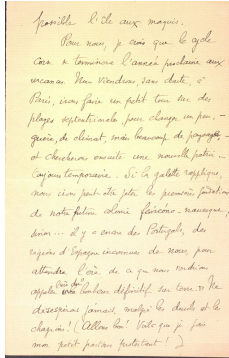 possible l'île aux maquis.
Pour nous, je crois que le cycle
corse se terminera l'année prochaine aux
vacances. Nous viendrons, sans doute, à
Paris, irons faire un petit tour sur des
plages septentrionales, pour changer un peu, -
guère, de climat, mais beaucoup de paysages, -
et chercherons ensuite une nouvelle patrie -
toujours temporaire. Si la galette rapplique,
nous irons peut-être jeter les premières fondations
de notre future
sinon... il y a encore des Portugals, des
régions d'Espagne inconnues de nous, pour
attendre l'âge de ce que nous voudrions
appeler définitif sur terre. Ne
désespérons jamais, malgré les deuils et les
chagrins! (Allons bon! Voilà que je fais
mon petit pasteur protestant!)